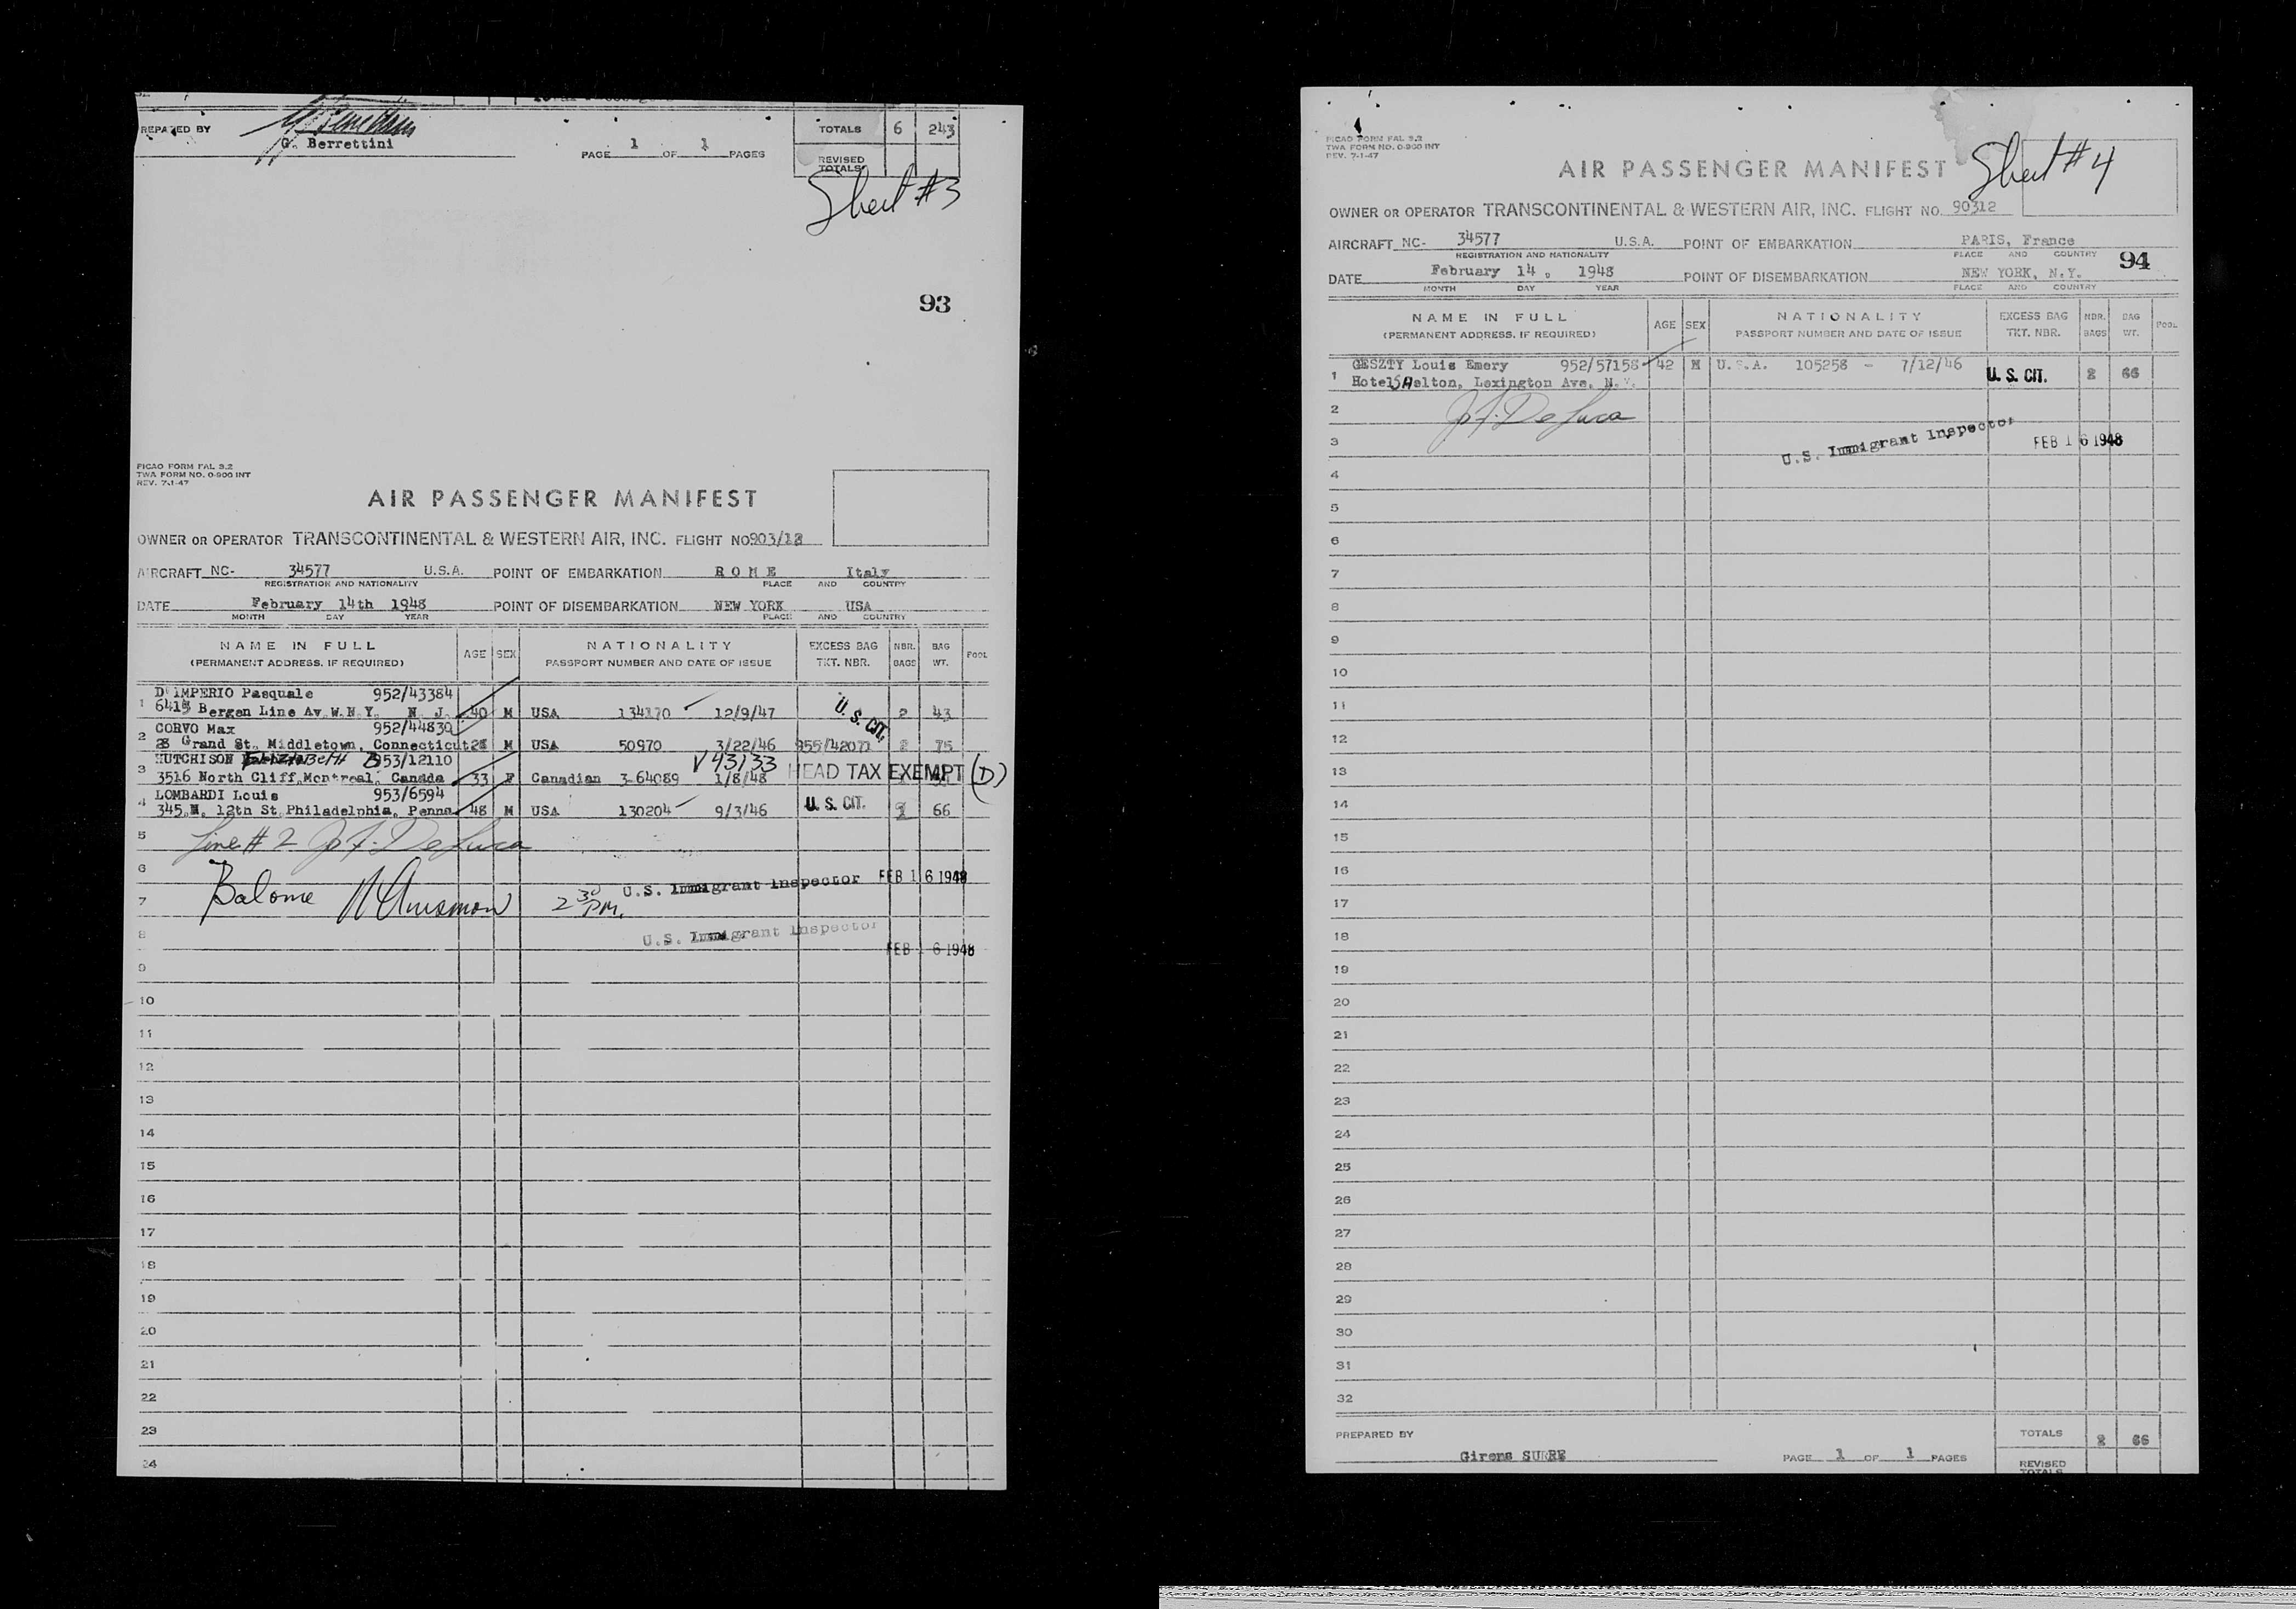 REPARED BY
G. Berrettini
PAGE 1 OF 1 PAGES
TOTALS 6 243
REVISED TOTALS
Sheet #3
93
PICAO FORM FAL 3.2
TWA FORM NO. 0-900 INT
REV. 7-1-47
AIR PASSENGER MANIFEST
OWNER OR OPERATOR TRANSCONTINENTAL & WESTERN AIR, INC. FLIGHT NO 903/12
AIRCRAFT NC- 34577 U.S.A. POINT OF EMBARKATION ROME Italy
REGISTRATION AND NATIONALITY PLACE AND COUNTRY
DATE February 14th 1948 POINT OF DISEMBARKATION NEW YORK USA
MONTH DAY YEAR PLACE AND COUNTRY
NAME IN FULL AGE SEX NATIONALITY EXCESS BAG NBR. BAG POOL
(PERMANENT ADDRESS, IF REQUIRED) PASSPORT NUMBER AND DATE OF ISSUE TKT. NBR. BAGS WT.
D'IMPERIO Pasquale 952/43384
1 6415 Bergen Line Av. W.N.Y. N. J. 40 M USA 134170 12/9/47 U. S. CIT. 2 43
CORVO Max 952/44830
2 28 Grand St. Middletown, Connecticut 28 M USA 50970 3/22/46 955/42071 2 75
HUTCHISON BETH B 953/12110 V43133
3 3516 North Cliff, Montreal, Canada 33 F Canadian 3-64089 1/8/48 HEAD TAX EXEMPT (D)
LOMBARDI Louis 953/6594
4 345 N. 12th St. Philadelphia, Penna 48 M USA 130204 9/3/46 U. S. CIT. 66
5 Line #2 J. F. DeLuca
6
7 Balome 2 30 P.M. U.S. Immigrant Inspector FEB 16 1948
8 U.S. Immigrant Inspector FEB 16 1948
9
10
11
12
13
14
15
16
17
18
19
20
21
22
23
24
PICAO FORM FAL 3.2
TWA FORM NO. 0-900 INT
REV. 7-1-47
AIR PASSENGER MANIFEST
Sheet #4
OWNER OR OPERATOR TRANSCONTINENTAL & WESTERN AIR, INC. FLIGHT NO. 90312
AIRCRAFT NC- 34577 U.S.A. POINT OF EMBARKATION PARIS, France
REGISTRATION AND NATIONALITY PLACE AND COUNTRY
94
DATE February 14, 1948 POINT OF DISEMBARKATION NEW YORK, N.Y.
MONTH DAY YEAR PLACE AND COUNTRY
NAME IN FULL AGE SEX NATIONALITY EXCESS BAG NBR. BAG POOL
(PERMANENT ADDRESS, IF REQUIRED) PASSPORT NUMBER AND DATE OF ISSUE TKT. NBR. BAGS WT.
GESZTY Louis Emery 952/57158 42 M U.S.A. 105258 - 7/12/46
1 Hotel SHelton, Lexington Ave. N.Y. U. S. CIT. 2 66
2 J. F. DeLuca
3 U.S. Immigrant Inspector FEB 16 1948
4
5
6
7
8
9
10
11
12
13
14
15
16
17
18
19
20
21
22
23
24
25
26
27
28
29
30
31
32
PREPARED BY
Girens SURRE
PAGE 1 OF 1 PAGES
TOTALS 2 66
REVISED TOTALS